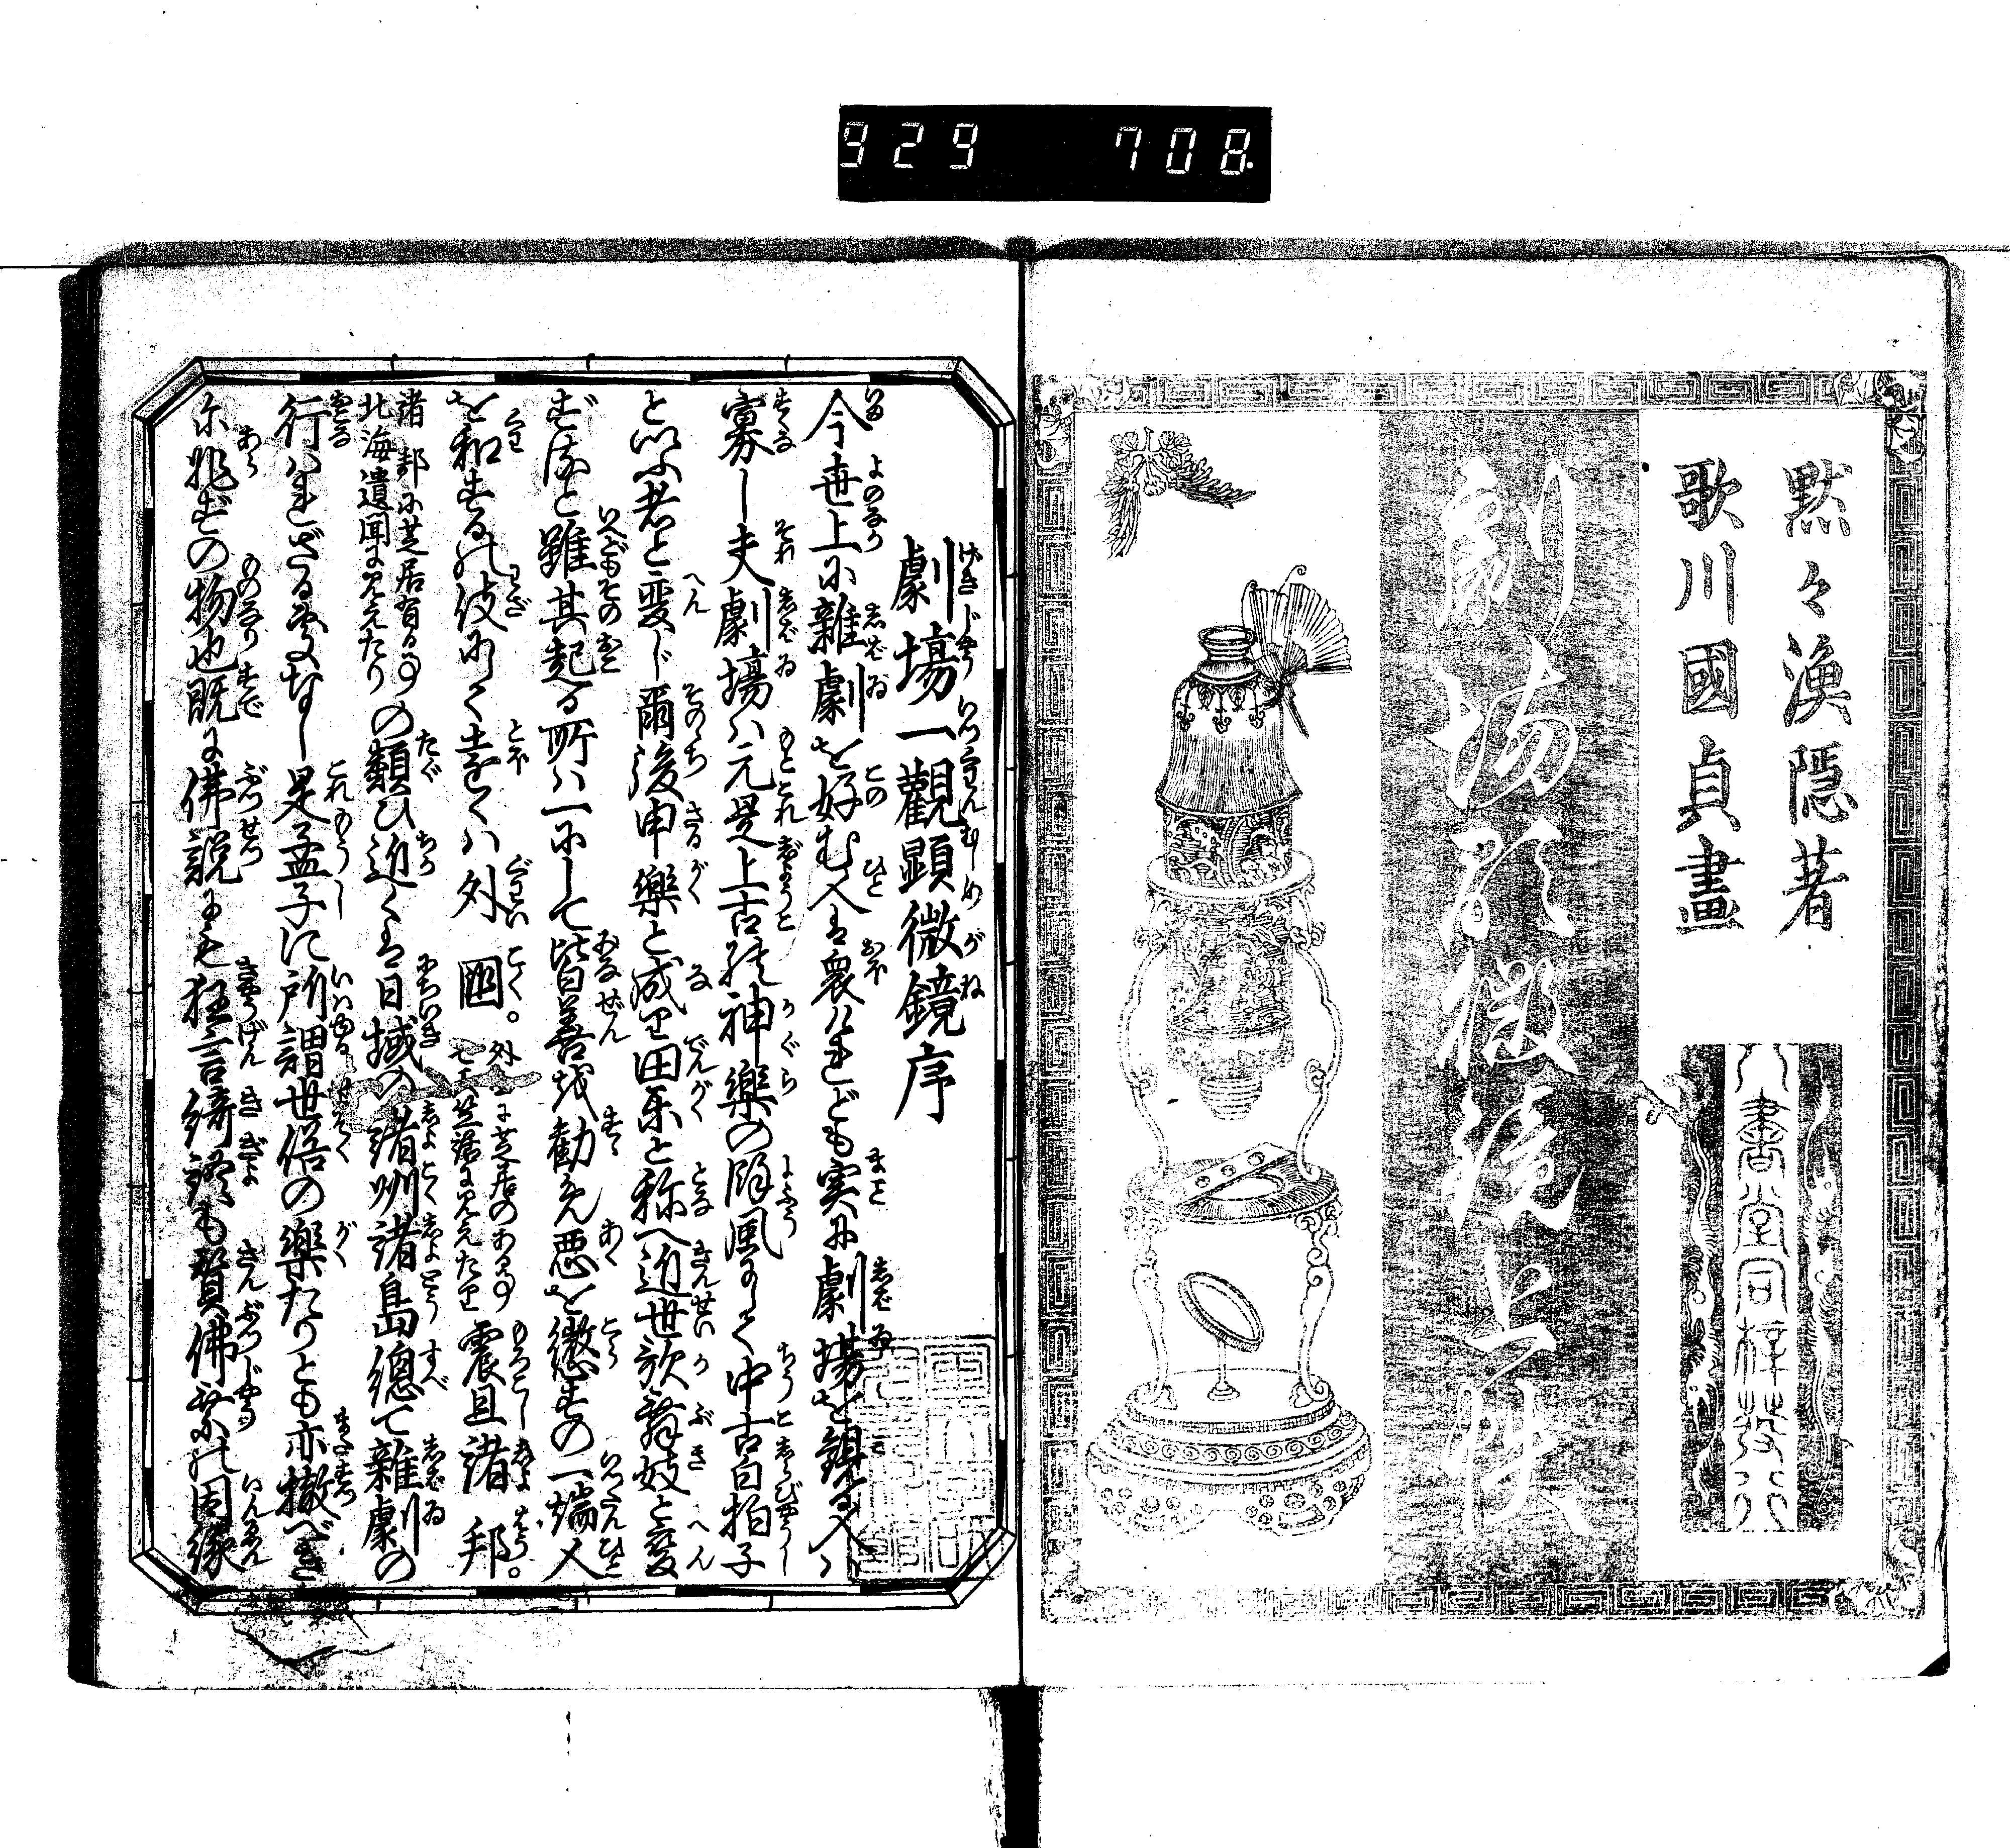 929 708
黙々漁隠著
歌川國貞畫
劇場一觀顕微鏡上帙
書堂同梓発行
劇塲一觀顕微鏡序
今世上に雜劇を好む人は衆けれども実に劇場を観る人ハ
寡し夫劇場ハ元是上古の神楽の余風にして中古白拍子
といふ者と変じ爾後申樂と成り田楽と称へ近世歌舞妓と変
ずると雖其起る所ハ一にして皆善を勧め悪を懲すの一端人
を和するの伎にして遠くハ外國。震旦諸邦。
諸邦に芝居有る事
北海遺聞に見えたり
の類ひ近くは日域の諸州諸島總て雜劇の
行ハれざる處なし是孟子に所謂世俗の樂たりとも亦撤べき
に非ずの物也既に佛説にも狂言綺語も賛佛乗の因縁